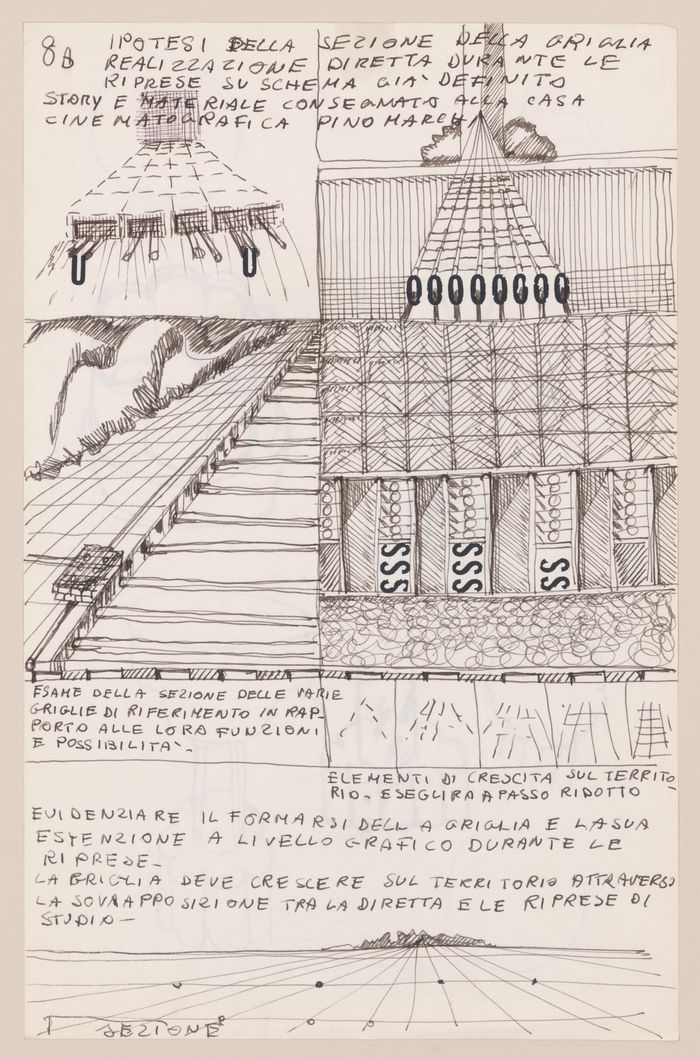 8B IPOTESI DELLA SEZIONE DELLA GRIGLIA
REALIZZAZIONE DIRETTA DURANTE LE
RIPRESE SU SCHEMA GIA' DEFINITO
STORY E MATERIALE CONSEGNATO ALLA CASA
CINEMATOGRAFICA PINO MARCHI
U U
0 0 0 0 0 0 0 0
SSS SSS SS
ESAME DELLA SEZIONE DELLE VARIE
GRIGLIE DI RIFERIMENTO IN RAP-
PORTO ALLE LORO FUNZIONI
E POSSIBILITA'-
ELEMENTI DI CRESCITA SUL TERRITO-
RIO- ESEGUIRA A PASSO RIDOTTO
EVIDENZIARE IL FORMARSI DELLA GRIGLIA E LA SUA
ESTENZIONE A LIVELLO GRAFICO DURANTE LE
RIPRESE-
LA GRIGLIA DEVE CRESCERE SUL TERRITORIO ATTRAVERSO
LA SOVRAPPOSIZIONE TRA LA DIRETTA E LE RIPRESE DI
STUDIO-
SEZIONE